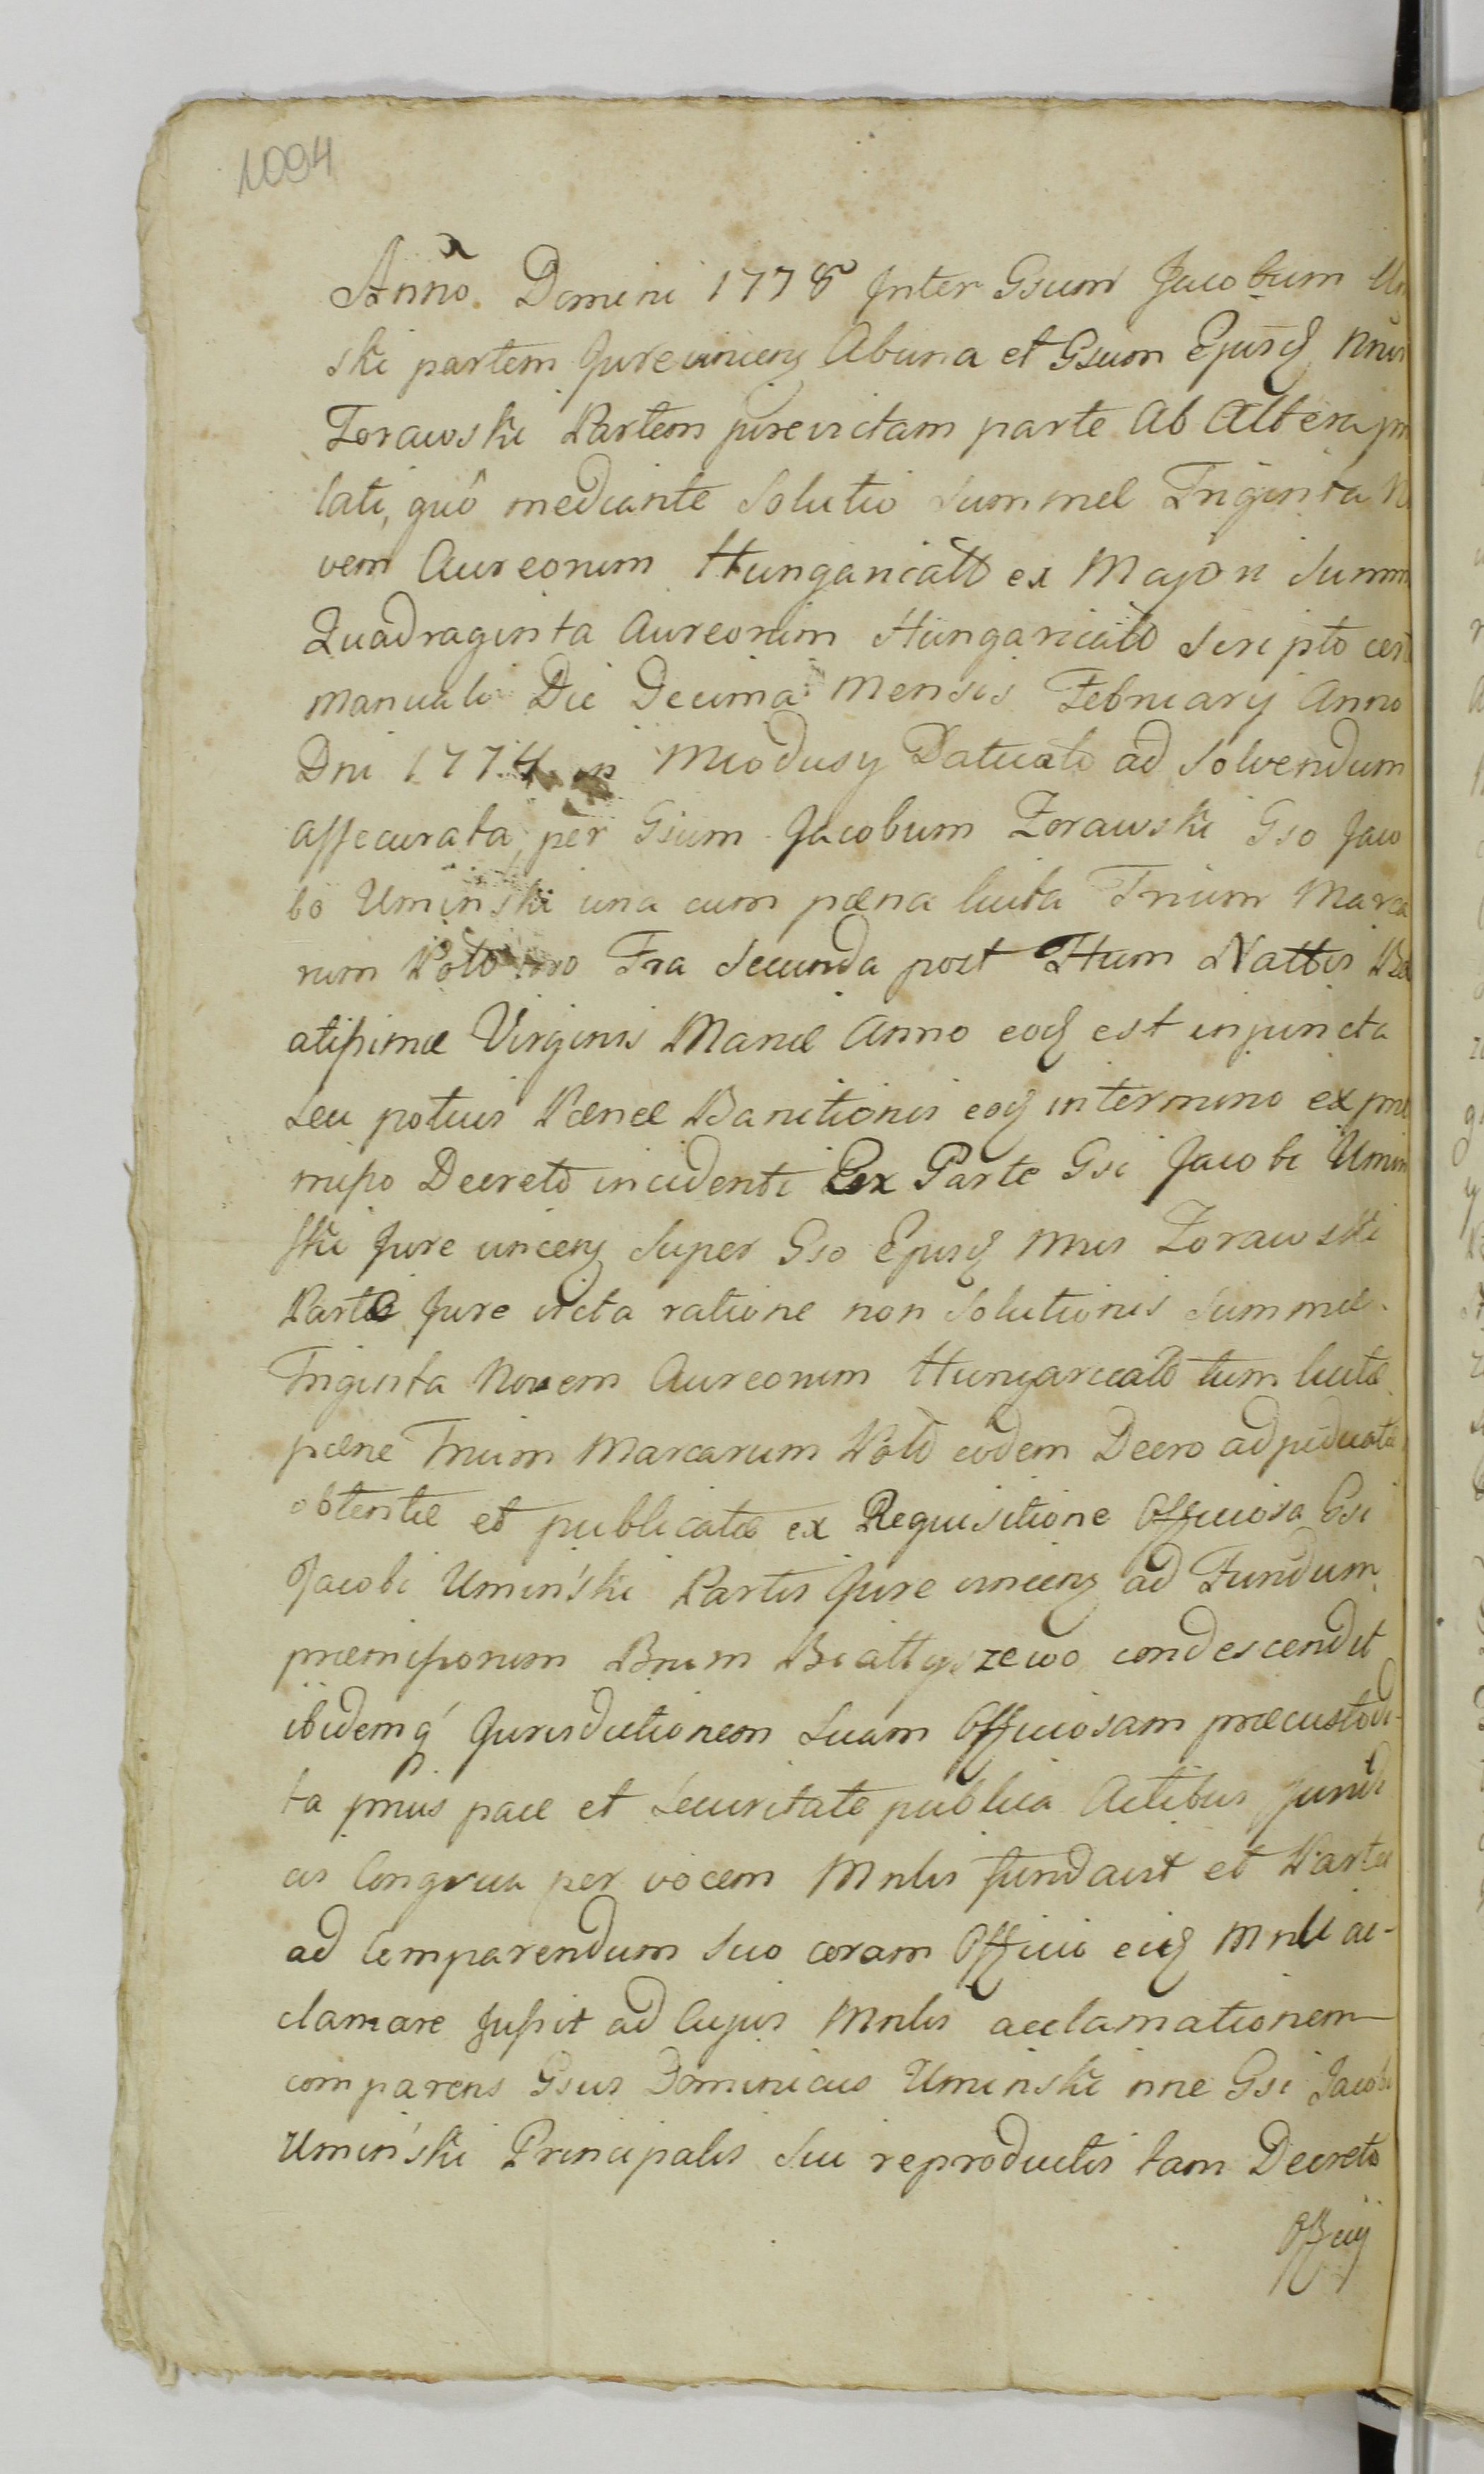 1094
Anno Domini 1778 Inter Gsum Jacobum Um
ski partem Jure vincenq Abuna et Gsum Ejusq
Zorawski Partem jurevictam parte Ab Altera
lati, quo mediante Solutio Summæ Triginta No
vem Aureorum Hungaricalb ex Majori Summ
Quadraginta Aureorum Hungaricalb Scripto cert
manuali Die Decima Mensis February Anno
Dni 1774 in Miodusy Datualo ad Solvendum
assecurata, per Gsum Jacobum Zorawski Gso Jaco
bo Umiński una cum pæna luita Trium Marca
rum Polb pro Fra Secunda post Ftum Nattis Be
atissimæ Virginis Mariæ Anno eoq est injuncta
Seu potius Pænæ Banitionis eoq in termino ex præ
misso Decreto incidenti Ex Parte Gsi Jacobi Umin
ski Jure vincenq Super Gso Ejusq Zorawski
Parte Jure victa ratione non Solutionis Summæ
Triginta Novem Aureorum Hungaricalb tum luitæ
pænæ Trium Marcarum Polb eodem Decro adjudicatæ
obtentæ et publicatæ ex Requisitione Officiosa Gsi
Jacobi Umiński Partis Jure vincenq ad Fundum
præmissorum Bnrum condescendit
ibidemq Jurisdictionem Suam Officiosam præcustodi-
ta prius pace et Securitate publica Actibus Juridi
cis Congrua per vocem Mnlis fundavit et Partes
ad Comparendum Suo coram Officio eiq Mnli ac-
clamare Jussit ad Cujus Mnlis acclamationem
comparens Gsus Dominicus Uminski nne Gsi Jacobi
Umiński Principalis Sui reproductis tam Decreto
Officij